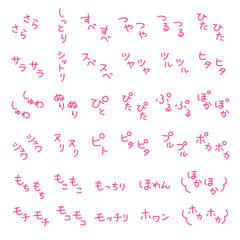 さらさら しっとり すべすべ つやつや つるつる ぴたぴた
サラサラ シットリ スベスベ ツヤツヤ ツルツル ピタピタ
しゅわしゅわ ぬりぬり ぴと ぴたぴた ぷるぷる ぽかぽか
シュワシュワ ヌリヌリ ピト ピタピタ プルプル ポカポカ
もちもち もこもこ もっちり ほわん ほかほか
モチモチ モコモコ モッチリ ホワン ホカホカ